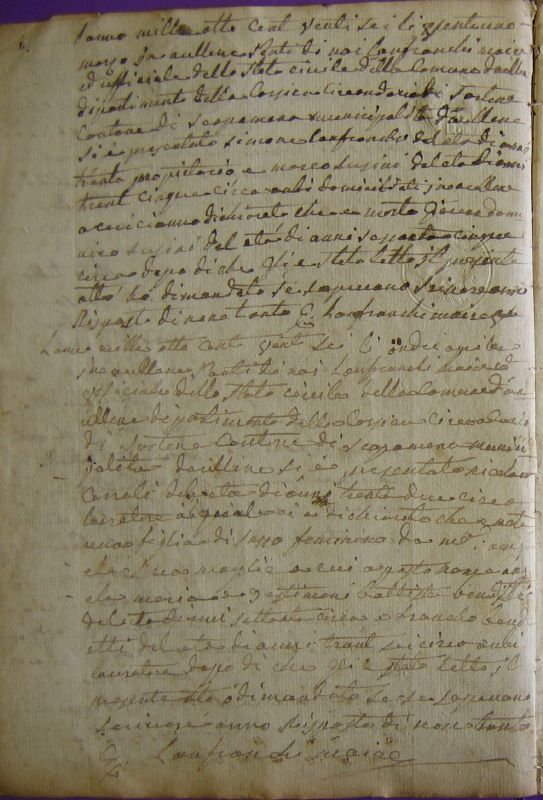 l'anno mille otto cent venti sei li trentuno
marzo in aullene avanti di noi Lanfranchi maire
ed uffiziale dello stato civile della Comuna daullene
dipartimento della Corsica Circondario di Sartene
Cantone di scopamene municipalità daullene
si è presentato simone Lanfranchi del età di anni
trenta propietario e marco susini del età di anni
trent cinque circa ambi domiciliati in aullene
a cui ci anno dichiarato che e morto Dome
nico susini del età di anni sessanta cinque
circa dopo di che gli è stato letto il presente
atto hò dimandato se sapevano scrivere anno
risposto di nono tanto Lanfranchi maire
L'anno mille otto cento vent sei li aprile
in aullene avanti di noi Lanfranchi maire ed
uffiziale dello stato civile della Comune da
ullene dipartimento della Corsica Circondario
di Sartene Cantone di scopamene munici
palità daullene si è presentato
del età di anni trenta due circa
lavoratore ci è dichiarato che è nato
una figlia di sesso feminino da me
sua moglie a cui a posto nome
maria testimoni battista bened
del età di anni settanta circa e bened
etti del età di anni trent sei circa ambi
lavoratore dopo di che gli è stato letto il
presente atto ò dimandato se sapevano
scrivere anno risposto di non tanto
Lanfranchi maire